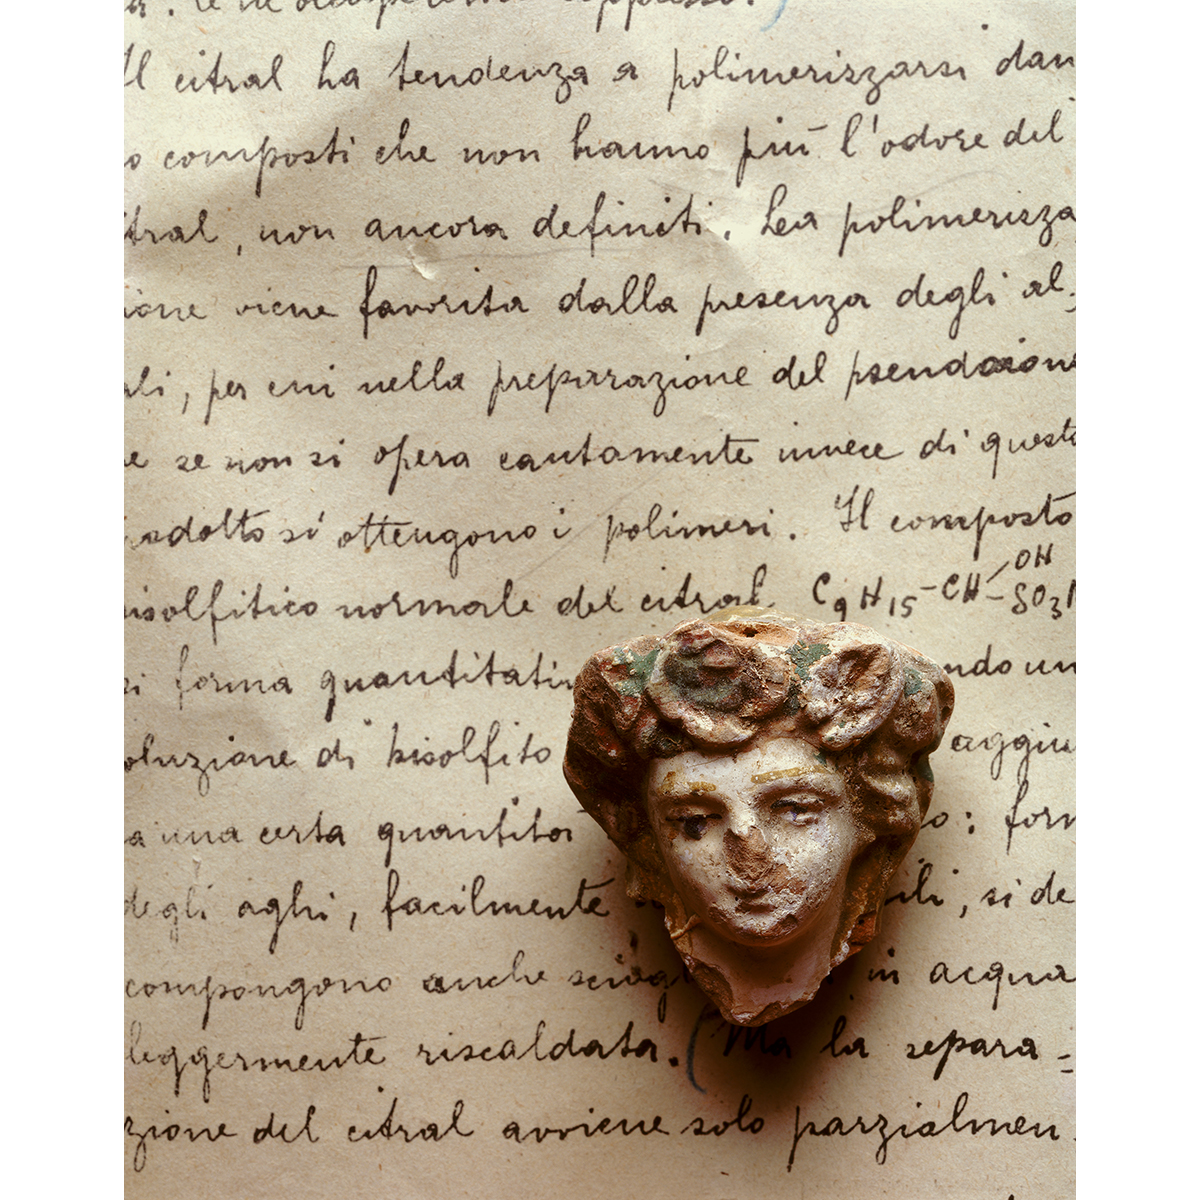 Il citral ha tendenza a polimerizzarsi dan
o composti che non hanno più l'odore del
tral, non ancora definiti. La polimerizza
ione viene favorita dalla presenza degli al.
ali, per cui nella preparazione del pseudoiono
e se non si opera cautamente invece di questo
adotto si ottengono i polimeri. Il composto
isolfitico normale del citral C9H15-CH-OH SO3
si forma quantitativ ndo un
oluzione di bisolfito aggiu
a una certa quantità o: form
degli aghi, facilmente ili, si de
compongono anche sciog in acqua
leggermente riscaldata. (Ma la separa-
zione del citral avviene solo parzialmen.